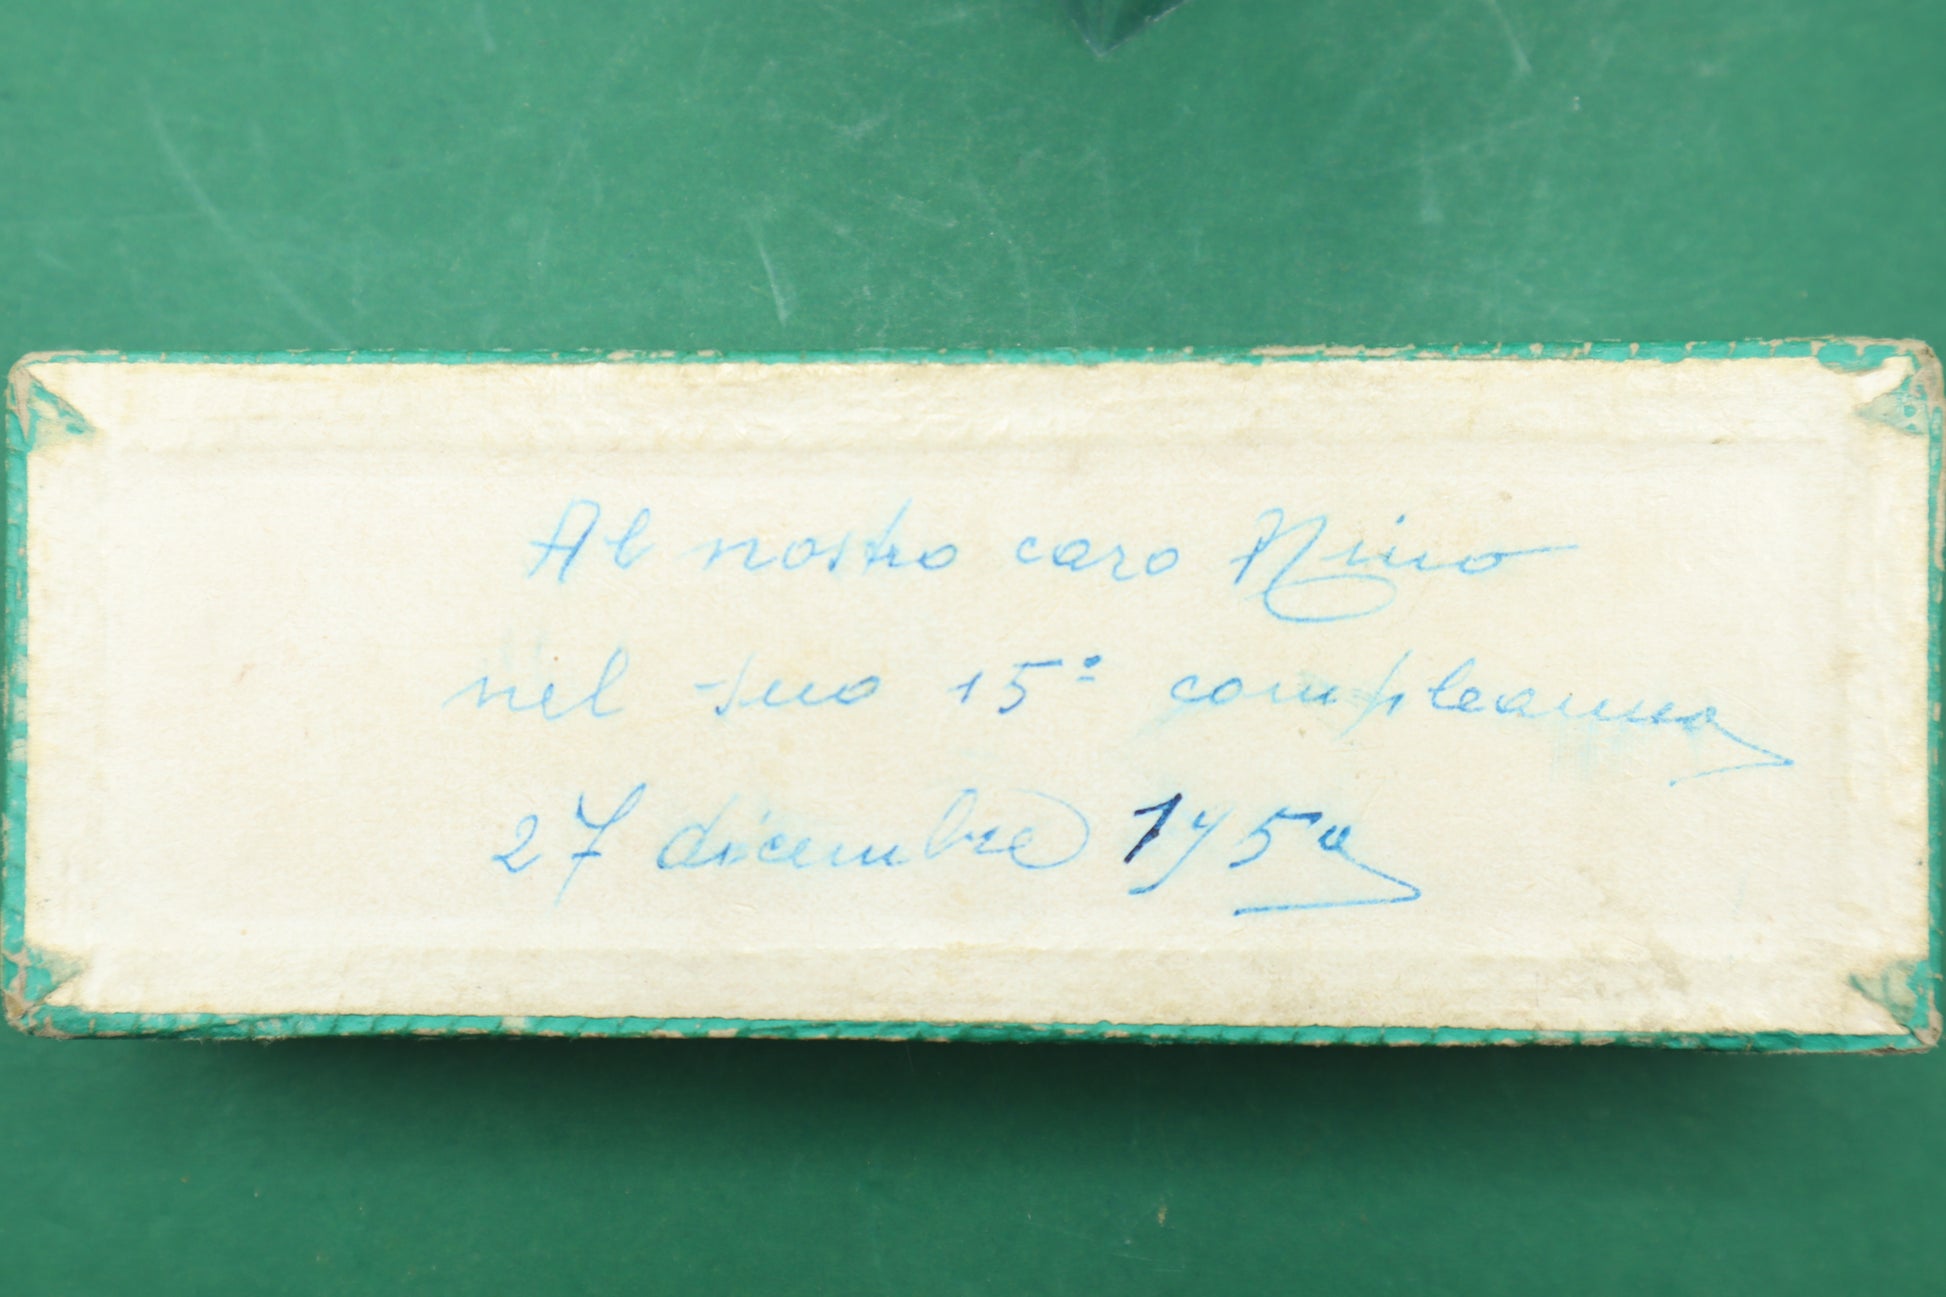 Al nostro caro Nino
nel suo 15º compleanno
27 dicembre 1950